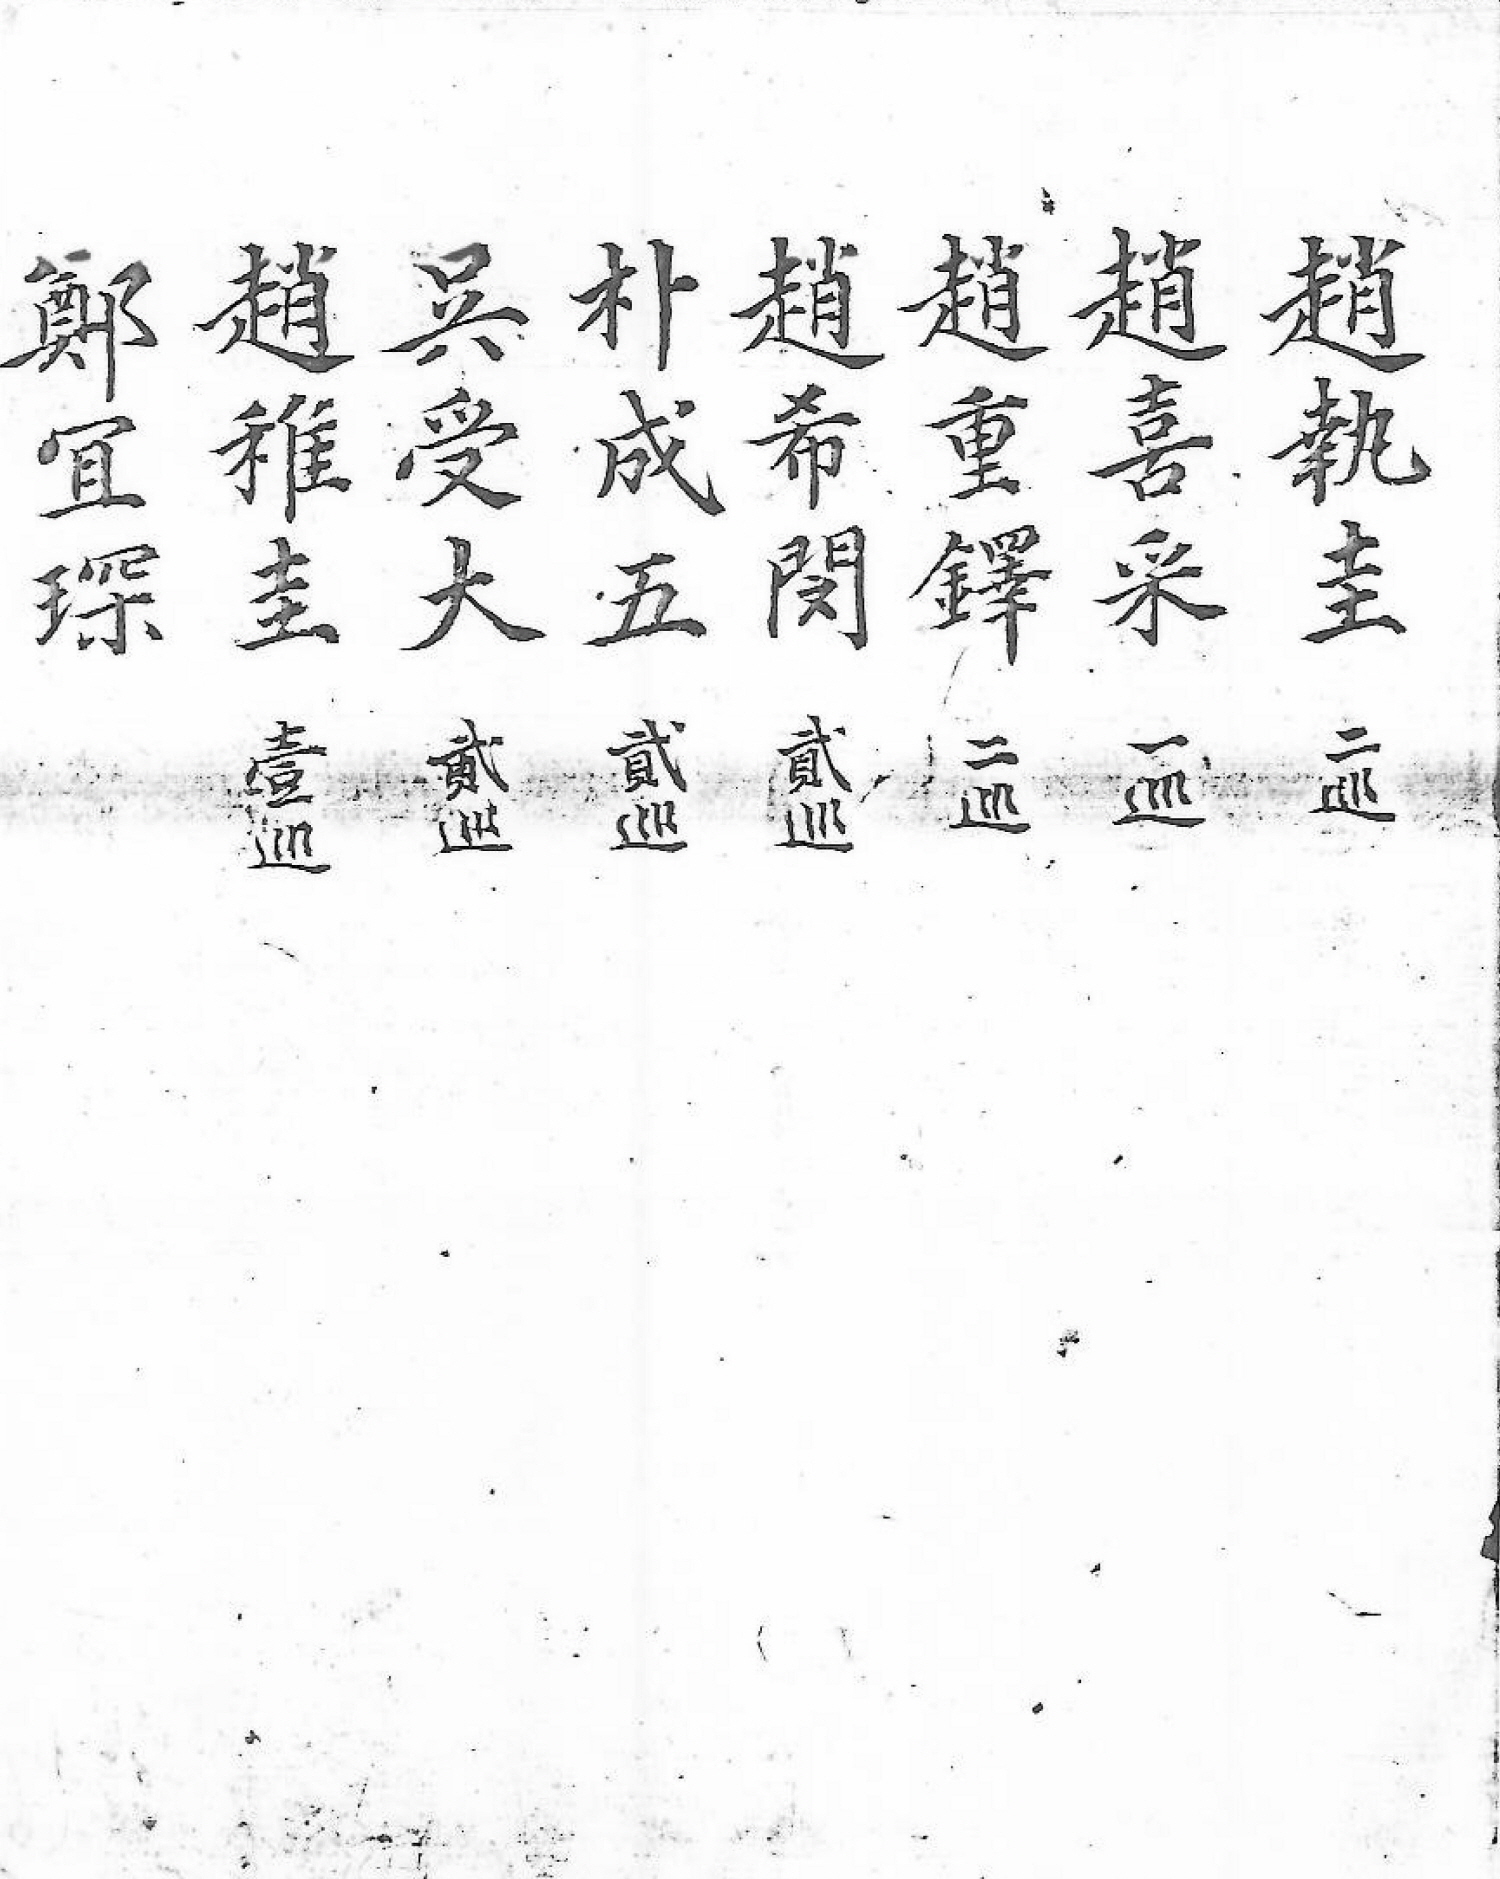 趙執圭 二巡
趙喜采 一巡
趙重鐸 二巡
趙希閔 貳巡
朴成五 貳巡
吳受大 貳巡
趙稚圭 壹巡
鄭宜琛